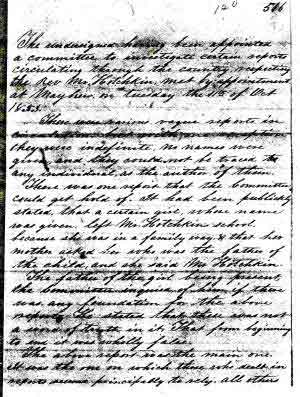 120 506
The undersigned having been appointed
a committee to investigate certain reports
circulating through the country respecting
the Rev. Mr Hotchkin met by appointment
at Mayhew on Tuesday the of Oct
185
There were various vague reports in
they were indefinite no names were
given and they could not be traced to
any individual as the author of them.
There was one report that the Committee
could get hold of. It had been publicly
stated, that a certain girl, whose name
was given left Mr Hotchkins school
because she was in a family way & that her
mother asked her who was the father of
the child and she said Mr Hotchkin.
The father of the girl being present,
the Committee inquired of him if there
was any foundation for the above
report. He stated that there was not
a word of truth in it. That from beginning
to end it was wholly false.
The above report was the main one.
It was the one on which those who dealt in
reports seemed principally to rely. all others